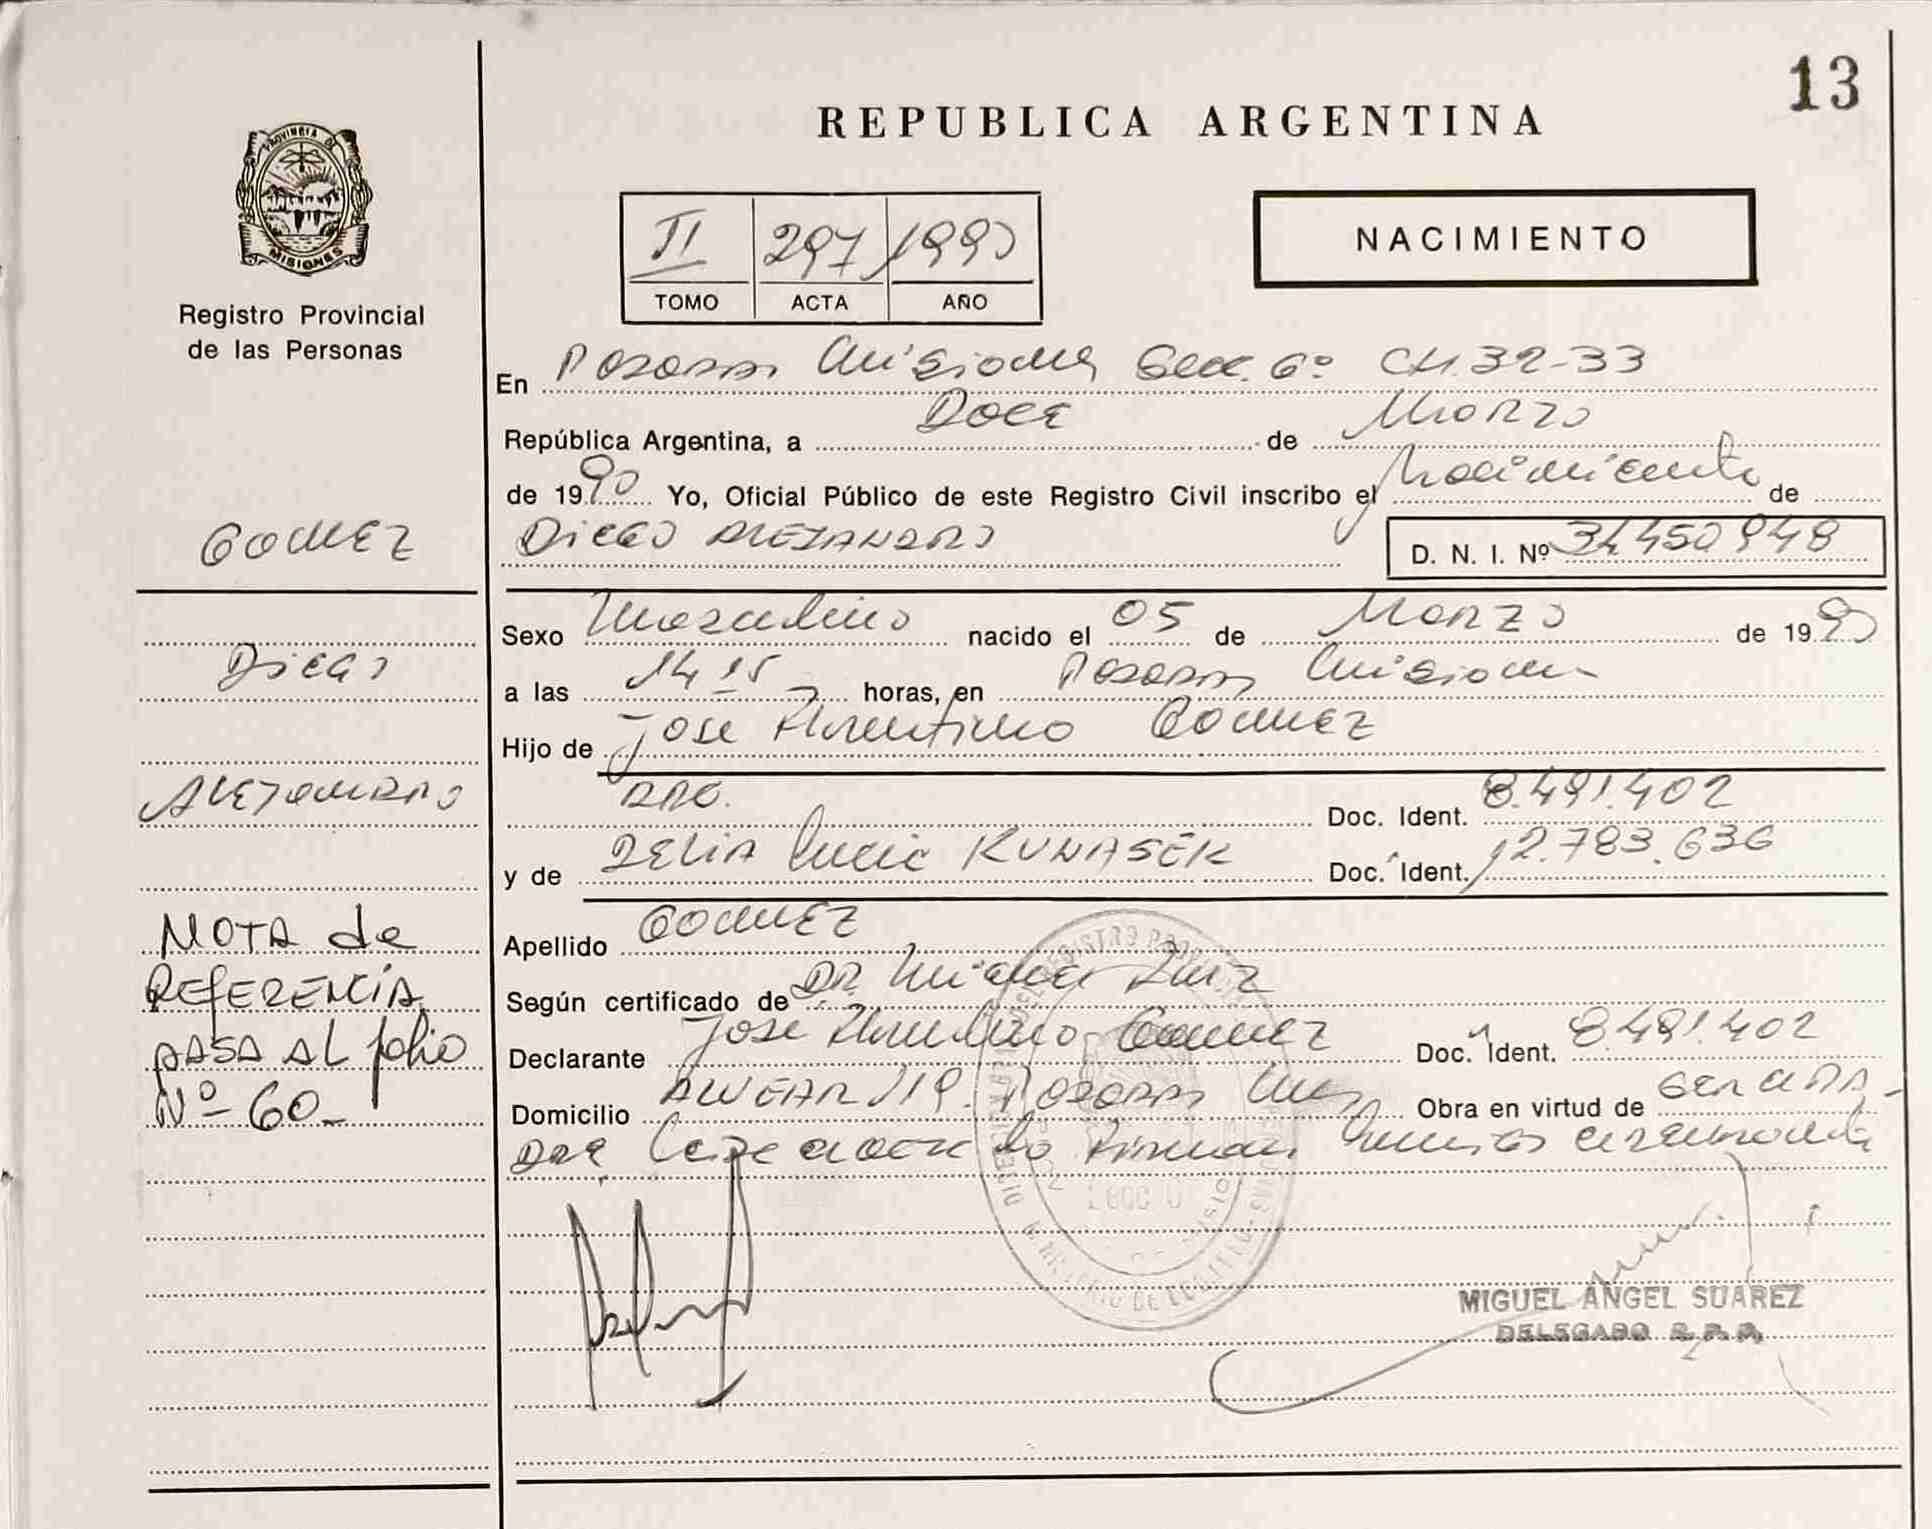 13
REPUBLICA ARGENTINA
PROVINCIA DE
MISIONES
Registro Provincial
de las Personas
II 297 1990
TOMO ACTA AÑO
NACIMIENTO
En Posadas Misiones Secc. 6º CH. 32-33
República Argentina, a Doce de Marzo
de 1990 Yo, Oficial Público de este Registro Civil inscribo el Nacimiento de
Diego ALEJANDRO D. N. I. Nº 34450948
Sexo Masculino nacido el 05 de Marzo de 1990
a las 14 15 horas, en Posadas Misiones
Hijo de Jose Florentino Gomez
Doc. Ident. 8.491.402
y de DELIA Lucia KUNASEK Doc. Ident. 12.783.636
Apellido GOMEZ
Según certificado de DR. Miguel Ruiz
Declarante Jose Florentino Gomez Doc. Ident. 8491.402
Domicilio ALVEAR Posadas Obra en virtud de
MIGUEL ANGEL SUAREZ
DELEGADO R. P. P.
GOMEZ
Diego
ALEJANDRO
NOTA de
REFERENCIA
PASA AL folio
Nº- 60-